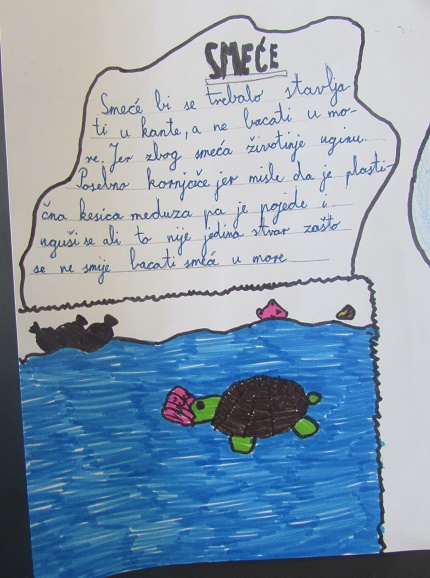 SMEĆE
Smeće bi se trebalo stavlja-
ti u kante, a ne bacati u mo-
re. Jer zbog smeća životinje uginu.
Posebno kornjače jer misle da je plasti-
čna kesica meduza pa je pojede i
uguši se ali to nije jedina stvar zašto
se ne smije bacati smeće u more